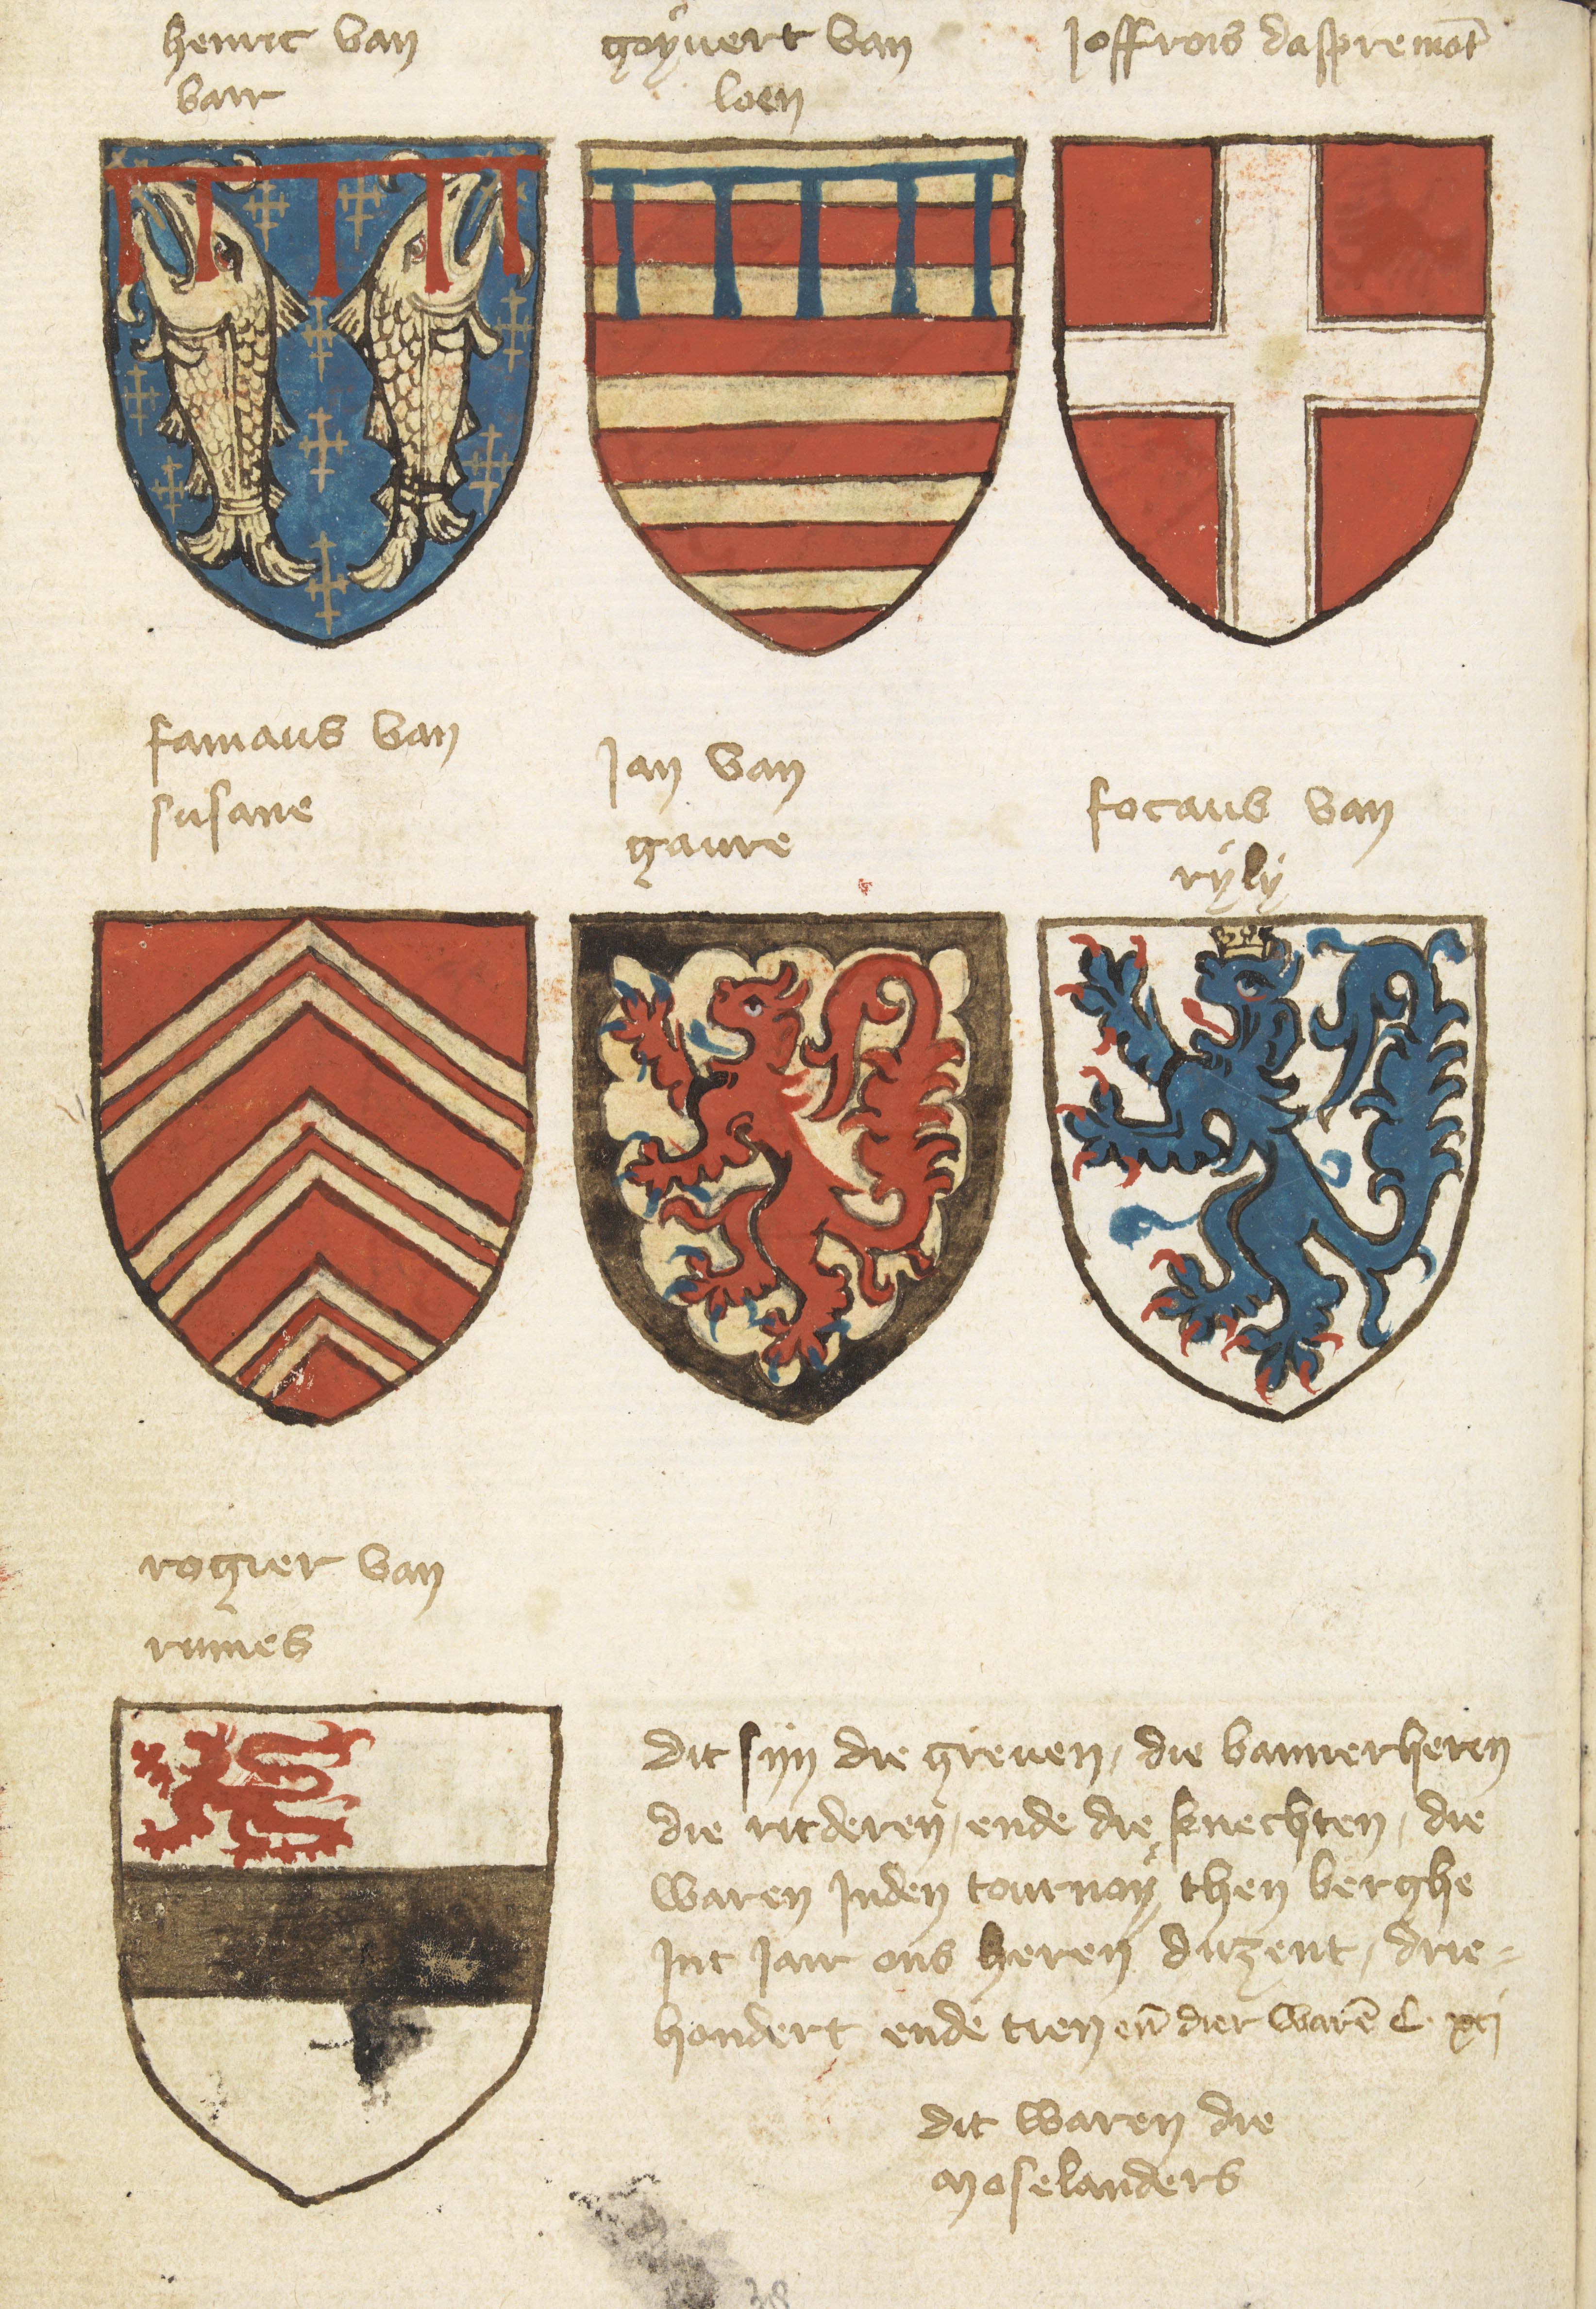 henric van
barr
goÿuert van
loen
Joffrois daspremōt
famaus van
susane
Jan van
gaure
focaus van
rÿlÿ
rogier van
rumes
Dit sijn die greuen / die bannerheren
die ritderen / ende die knechten / die
waren Inden tournoÿ then berghe
Int Jair ons heren duzent / drie=
hondert ende tien en̄ dier warē C xcj
dit waren die
moselanders
38